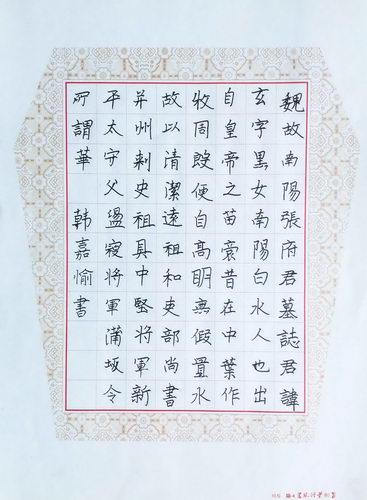 魏故南陽張府君墓誌君諱
玄字黑女南陽白水人也出
自皇帝之苗裔昔在中葉作
牧周殷便自高明無假置水
故以清潔遠祖和吏部尚書
并州刺史祖具中堅將軍新
平太守父盪寇將軍蒲坂令
所謂華 韩嘉愉書